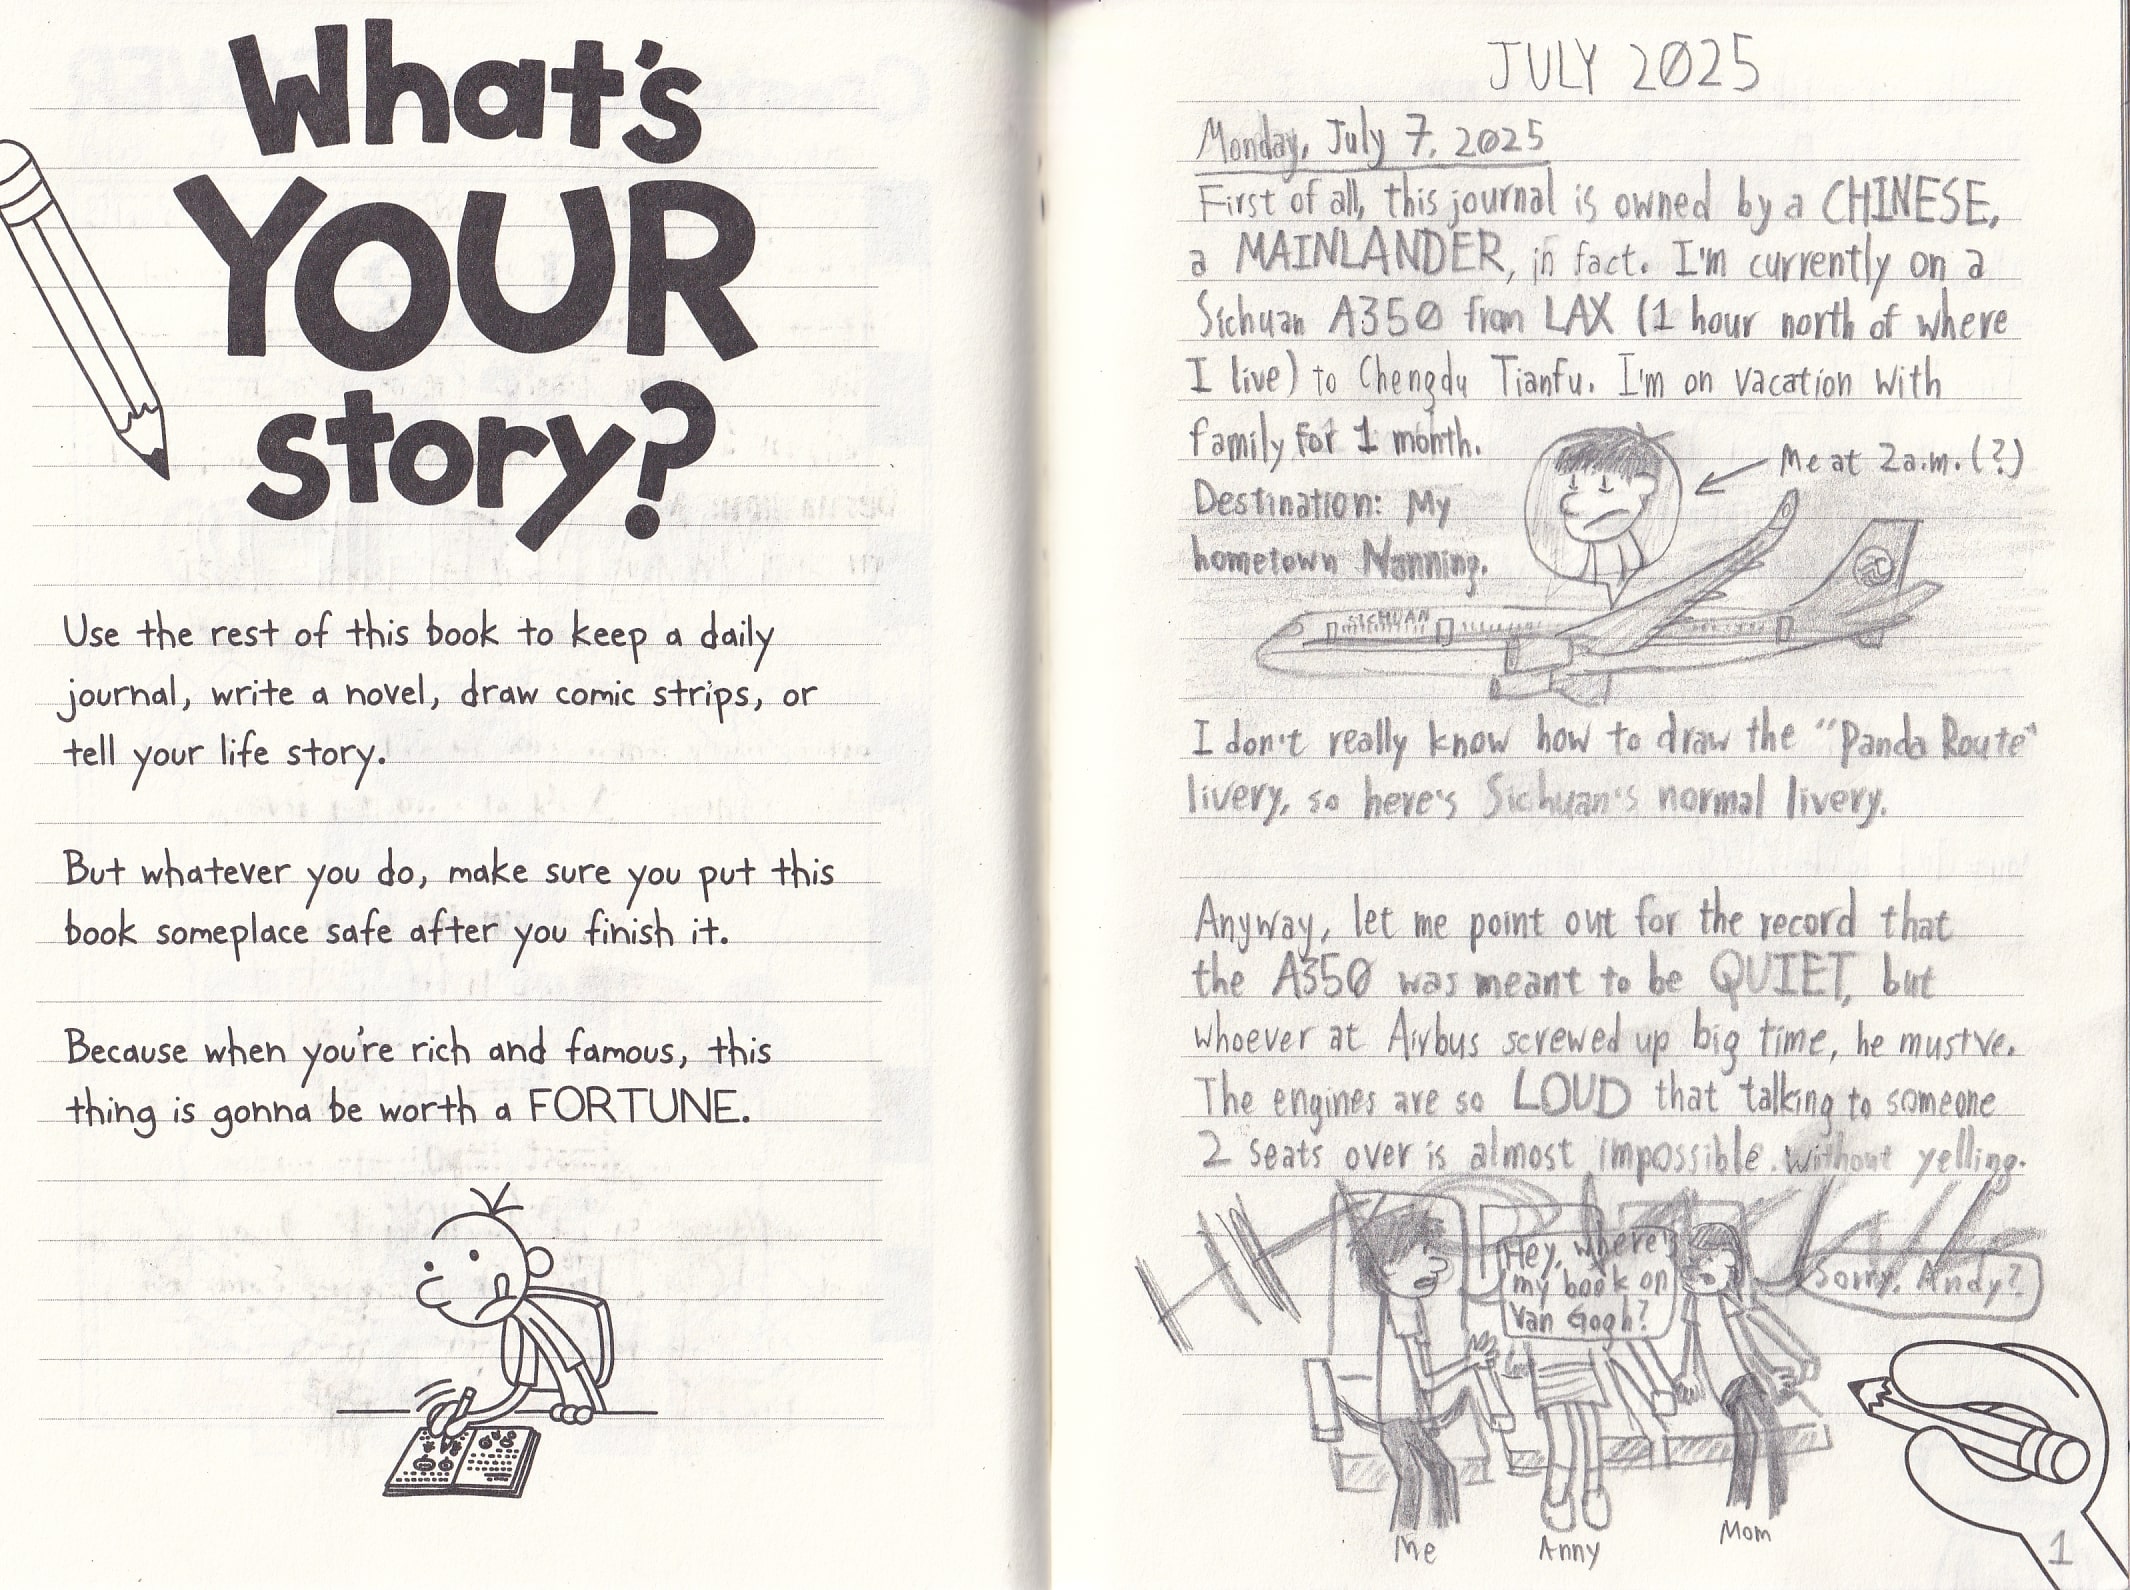 What's
YOUR
story?
Use the rest of this book to keep a daily
journal, write a novel, draw comic strips, or
tell your life story.
But whatever you do, make sure you put this
book someplace safe after you finish it.
Because when you're rich and famous, this
thing is gonna be worth a FORTUNE.
JULY 2025
Monday, July 7, 2025
First of all, this journal is owned by a CHINESE,
a MAINLANDER, in fact. I'm currently on a
Sichuan A350 from LAX (1 hour north of where
I live) to Chengdu Tianfu. I'm on vacation with
family for 1 month.
Me at 2a.m. (?)
Destination: My
hometown Nanning.
SICHUAN
I don't really know how to draw the "Panda Route"
livery, so here's Sichuan's normal livery.
Anyway, let me point out for the record that
the A350 was meant to be QUIET, but
whoever at Airbus screwed up big time, he must've.
The engines are so LOUD that talking to someone
2 seats over is almost impossible without yelling.
Hey, where's
my book on
Van Gogh?
Sorry, Andy?
Me
Anny
Mom
1